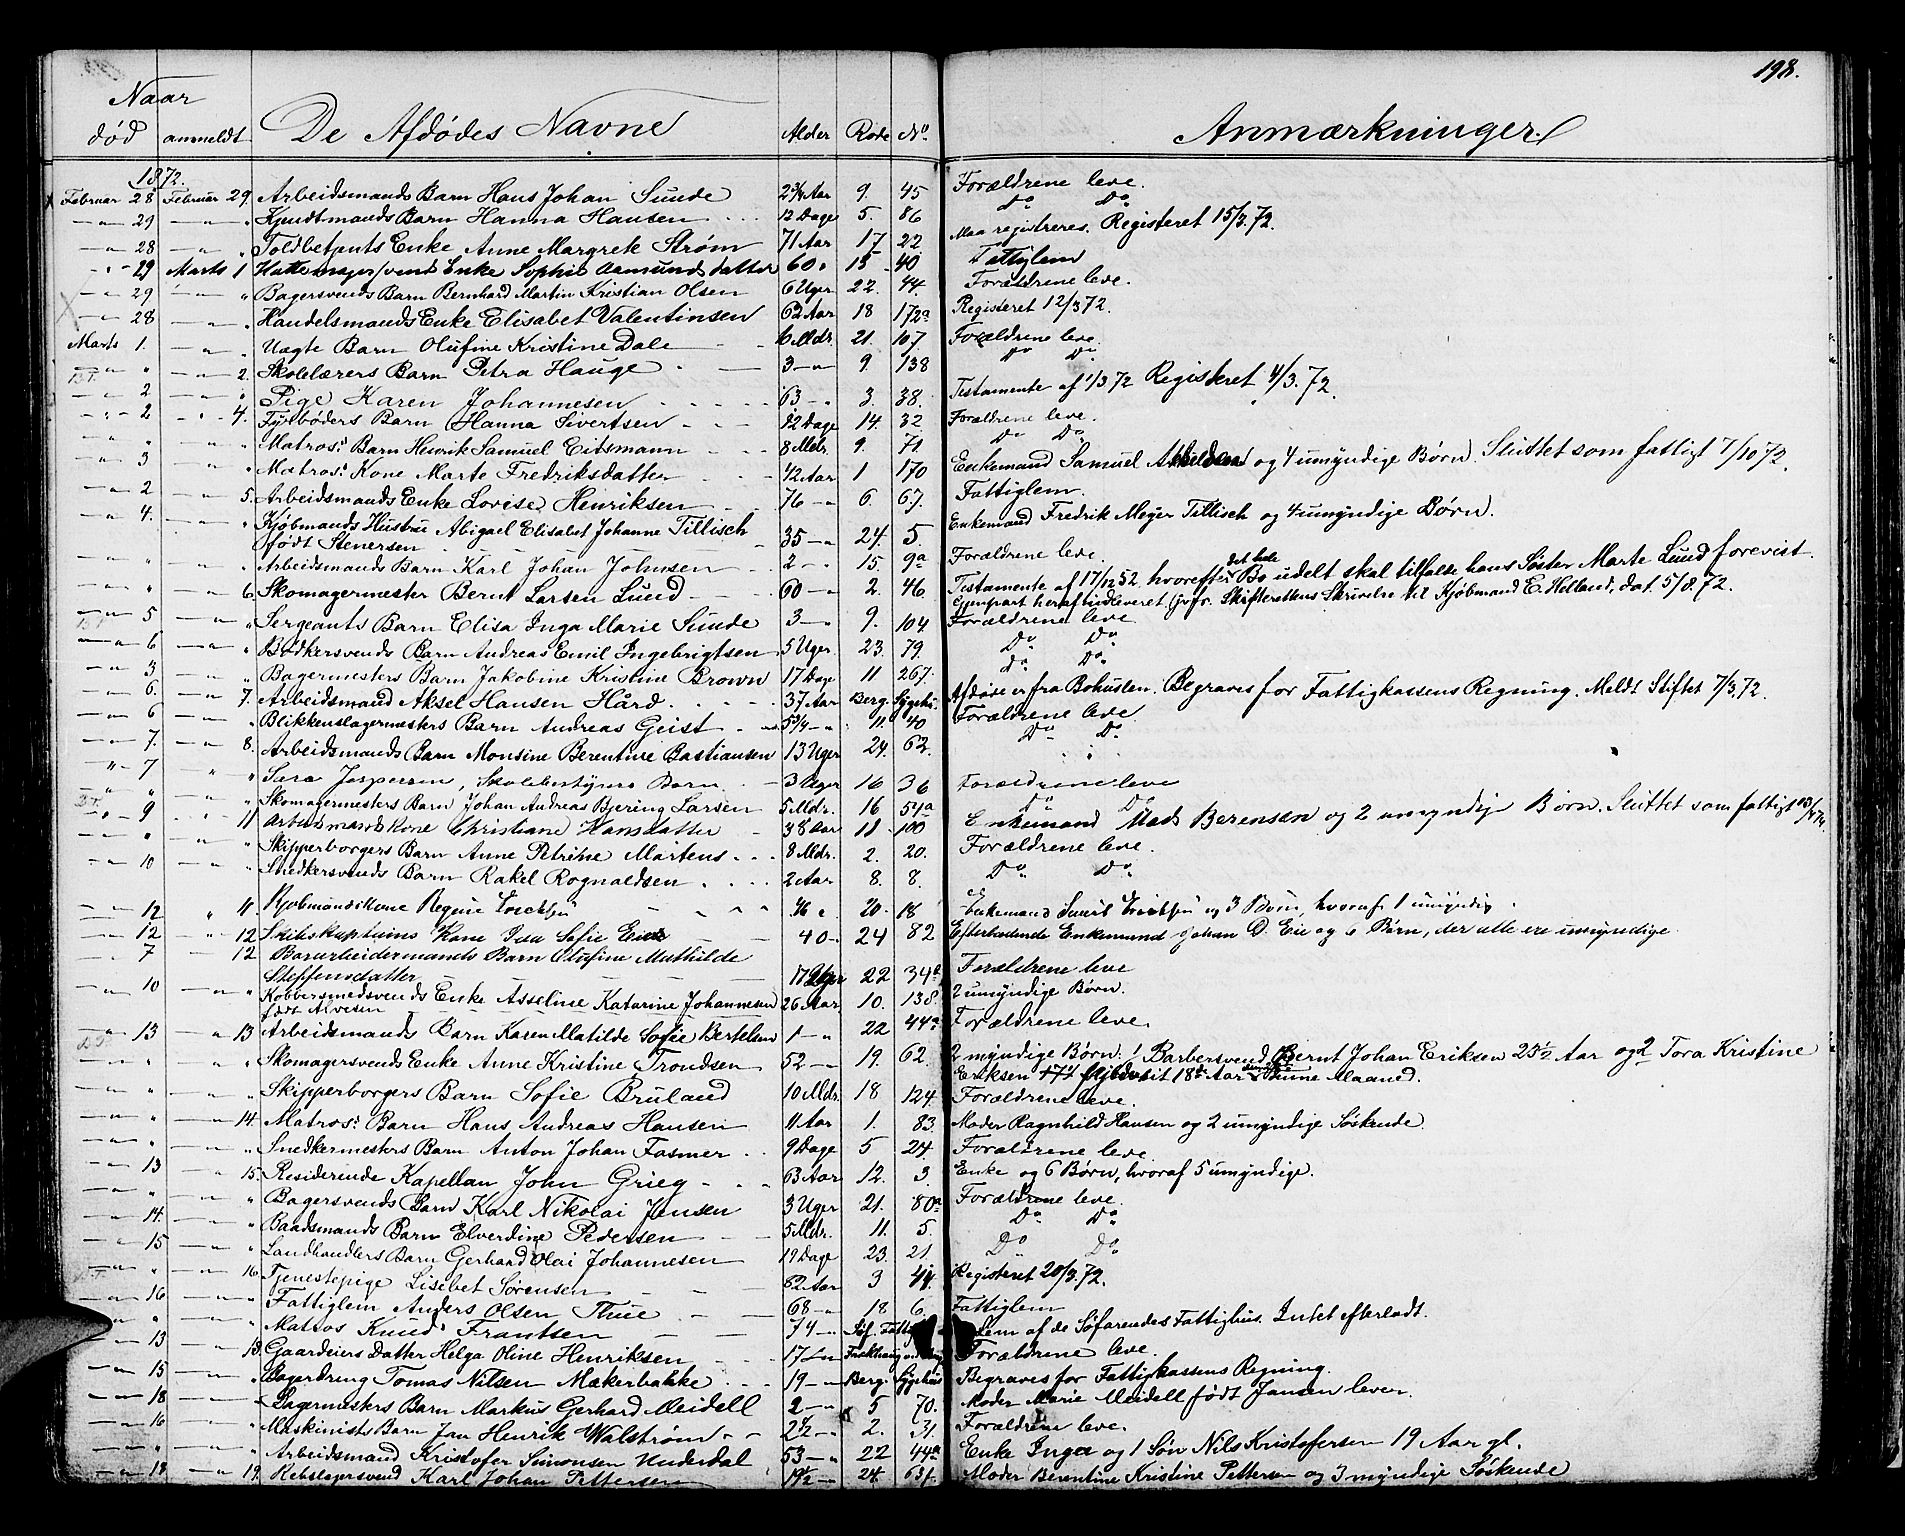 198.
Naar
død anmeldt De Afdødes Navne Alder Rode No. Anmærkninger.
1872.
Februar 28 Februar 29. Arbeidsmands Barn Hans Johan Sunde 2¾ Aar 9. 45 Forældrene leve.
" 29 " " Kjendtmands Barn Hanna Hansen 12 Dage 5. 86 Do Do
" 28 " " Toldbetjents Enke Anne Margrete Strøm 71 Aar 17 22 Maa registreres. Registeret 15/3.72.
" 29 Marts 1 Hattemagersvend Enke Sophie Aamundsdatter 60 " 15 40 Fattiglem
" 29 " " Bagersvends Barn Bernhard Martin Kristian Olsen 6 Uger 22. 44. Forældrene leve.
" 28 " " Handelsmands Enke Elisabet Valentinsen 62 Aar 18 172a Registeret 12/3 72.
Marts 1. " " Uægte Barn Olufine Kristine Dale 6 Mdr. 21. 107 Forældrene leve.
" " " 2. Skolelærers Barn Petra Hauge 3 " 9. 138 Do Do
" 2 " " Pige Karen Johannesen 63 " 3. 38. Testamente af 1/3 72 Registeret 4/3.72.
" 2 " 4. Fyrbøders Barn Hanna Sivertsen 12 Dage 14. 32 Forældrene leve.
" " " " Matros' Barn Henrik Samuel Eitsmann 8 Mdr. 9. 71. Do Do
" 3 " " Matros' Kone Marte Fredriksdatter 42 Aar 1 170 Enkemand Samuel og 4 umyndige Børn. Sluttet som fattigt 7/10 72.
" 2 " 5. Arbeidsmands Enke Lovise Henriksen 76 " 6. 67. Fattiglem.
" 4. " " Kjøbmands Hustru Abigael Elisabet Johanne Tillisch
født Stenersen 35 " 24. 5. Enkemand Fredrik Meyer Tillisch og 4 umyndige Børn.
" " " " Arbeidsmands Barn Karl Johan Johnsen 2 " 15. 9a Forældrene leve.
" " " 6. Skomagermester Bernt Larsen Lund 60 " 2. 46. Testamente af 17/12 52 hvorefter det hele Bo udelt skal tilfalde hans Søster Marte Lund forevist.
Gjenpart heraf indleveret jvfr. Skifterettens Skrivelse til Kjøbmand E. Helland, dat. 5/8.72.
" 5 " " Sergeants Barn Elisa Inga Marie Sunde 3 " 9. 104. Forældrene leve
" 6 " " Bødkersvends Barn Andreas Emil Ingebrigtsen 5 Uger. 23. 79. Do Do
" 3 " " Bagermesters Barn Jakobine Kristine Brown 17 Dage 11 267. Do Do
" 6. " 7. Arbeidsmand Aksel Hansen Hård. 37 Aar Berg. Sygehs. Afdøde er fra Bohuslen. Begraves for Fattigkassens Regning. Meldt Stiftet 7/3.72.
" 6 " " Blikkenslagermesters Barn Andreas Geist 5¾ " 11. 40 Forældrene leve.
" 7. " 8. Arbeidsmands Barn Monsine Berentine Bastiansen 13 Uger 24. 62. Do Do
" 7 " " Sara Jespersen, Skolebestyrers Barn 3 Uger 16 36 Forældrene leve
" " " " Skomagermesters Barn Johan Andreas Bjering Larsen 5 Mdr. 16 54a Do Do
" 9 " 11 Arbeidsmands Kone Christiane Hansdatter 38 Aar 18 100 Enkemand Mads Berensen og 2 umyndige Børn. Sluttet som fattigt
" " " " Skipperborgers Barn Anne Petrine Martens 8 Mdr. 2. 20. Forældrene leve.
" 10 " " Snedkersvends Barn Rakel Rognaldsen 2 Aar 8. 8. Do Do
" 12 " 11. Kjøbmands Kone Regine 46 " 20 18 Enkemand og 3 Børn, hvoraf 1 umyndig.
" 12 " 12 Skibskaptains Kone Ida Sofie Eie 40 24 82 Efterladende Enkemand Johan D. Eie og 6 Børn, der alle ere umyndige
" 7 " 12 Bararbeidermands Barn Olufine Mathilde
Steffensdatter 17 Uger 22 34a Forældrene leve
" 10 " " Kobbersmedsvends Enke Asseline Katarine Johannesen
født Alvesen 26 Aar 10. 138. 2 umyndige Børn.
" 13 " 13 Arbeidsmands Barn Karen Matilde Sofie Bertelsen 1 " 22 44a Forældrene leve.
" " " " Skomagersvends Enke Anne Kristine Trondsen 52 " 19. 62. 2 myndige Børn. 1 Barbersvend Bernt Johan Eriksen 23½ Aar og 2 Tora Kristine
Eriksen 17½ fyldt sit 18de Aar denne Maaned.
" " " " Skipperborgers Barn Sofie Bruland 10 Mdr. 18 124. Forældrene leve.
" " " 14. Matros' Barn Hans Andreas Hansen 11 Aar 1. 83. Moder Ragnhild Hansen og 2 umyndige Søskende.
" " " " Snedkermesters Barn Anton Johan Fasmer 9 Dage 5 24. Forældrene leve
" 13 " 15. Residerende Kapellan John Grieg 63 Aar 12. 3. Enke og 6 Børn, hvoraf 5 umyndige.
" " " " Bagersvends Barn Karl Nikolai Jensen 3 Uger 21. 80a Forældrene leve.
" 14. " " Baadsmands Barn Elverdine Pedersen 5 Mdr. 11. 5. Do Do
" 15 " " Landhandlers Barn Gerhard Olai Johannesen 19 Dage 23. 21. Do Do
" " " 16. Tjenestepige Lisebet Sørensen 82 Aar 3 44. Registeret 20/3.72.
" 16 " " Fattiglem Anders Olsen Thue 68 " 18 6. Fattiglem
" " " " Matros Knud Frantsen 74 " Søf. Fattig Lem af de Søfarendes Fattighus. Intet efterladt.
" 13 " 18. Gaardeiers Datter Helga Oline Henriksen 17 Forældrene leve.
" 15 " " Bagerdreng Tomas Nilsen Mækerbakke 19 " Berg. Sygehus Begraves for Fattigkassens Regning.
" 18 " " Bagermesters Barn Markus Gerhard Meidell 2 " 5 70. Moder Marie Meidell født Jansen lever.
" 16 " " Maskinists Barn Jan Henrik Walstrøm 2½ " 2. 31. Forældrene leve.
" " " " Arbeidsmand Kristofer Simonsen Underdal 53 " 22 44a Enke Inger og 1 Søn Nils Kristofersen 19 Aar gl.
" 18 " 19. Rebslagersvend Karl Johan Pettersen 19½ " 24. 63f. Moder Berentine Kristine Pettersen og 3 myndige Søskende